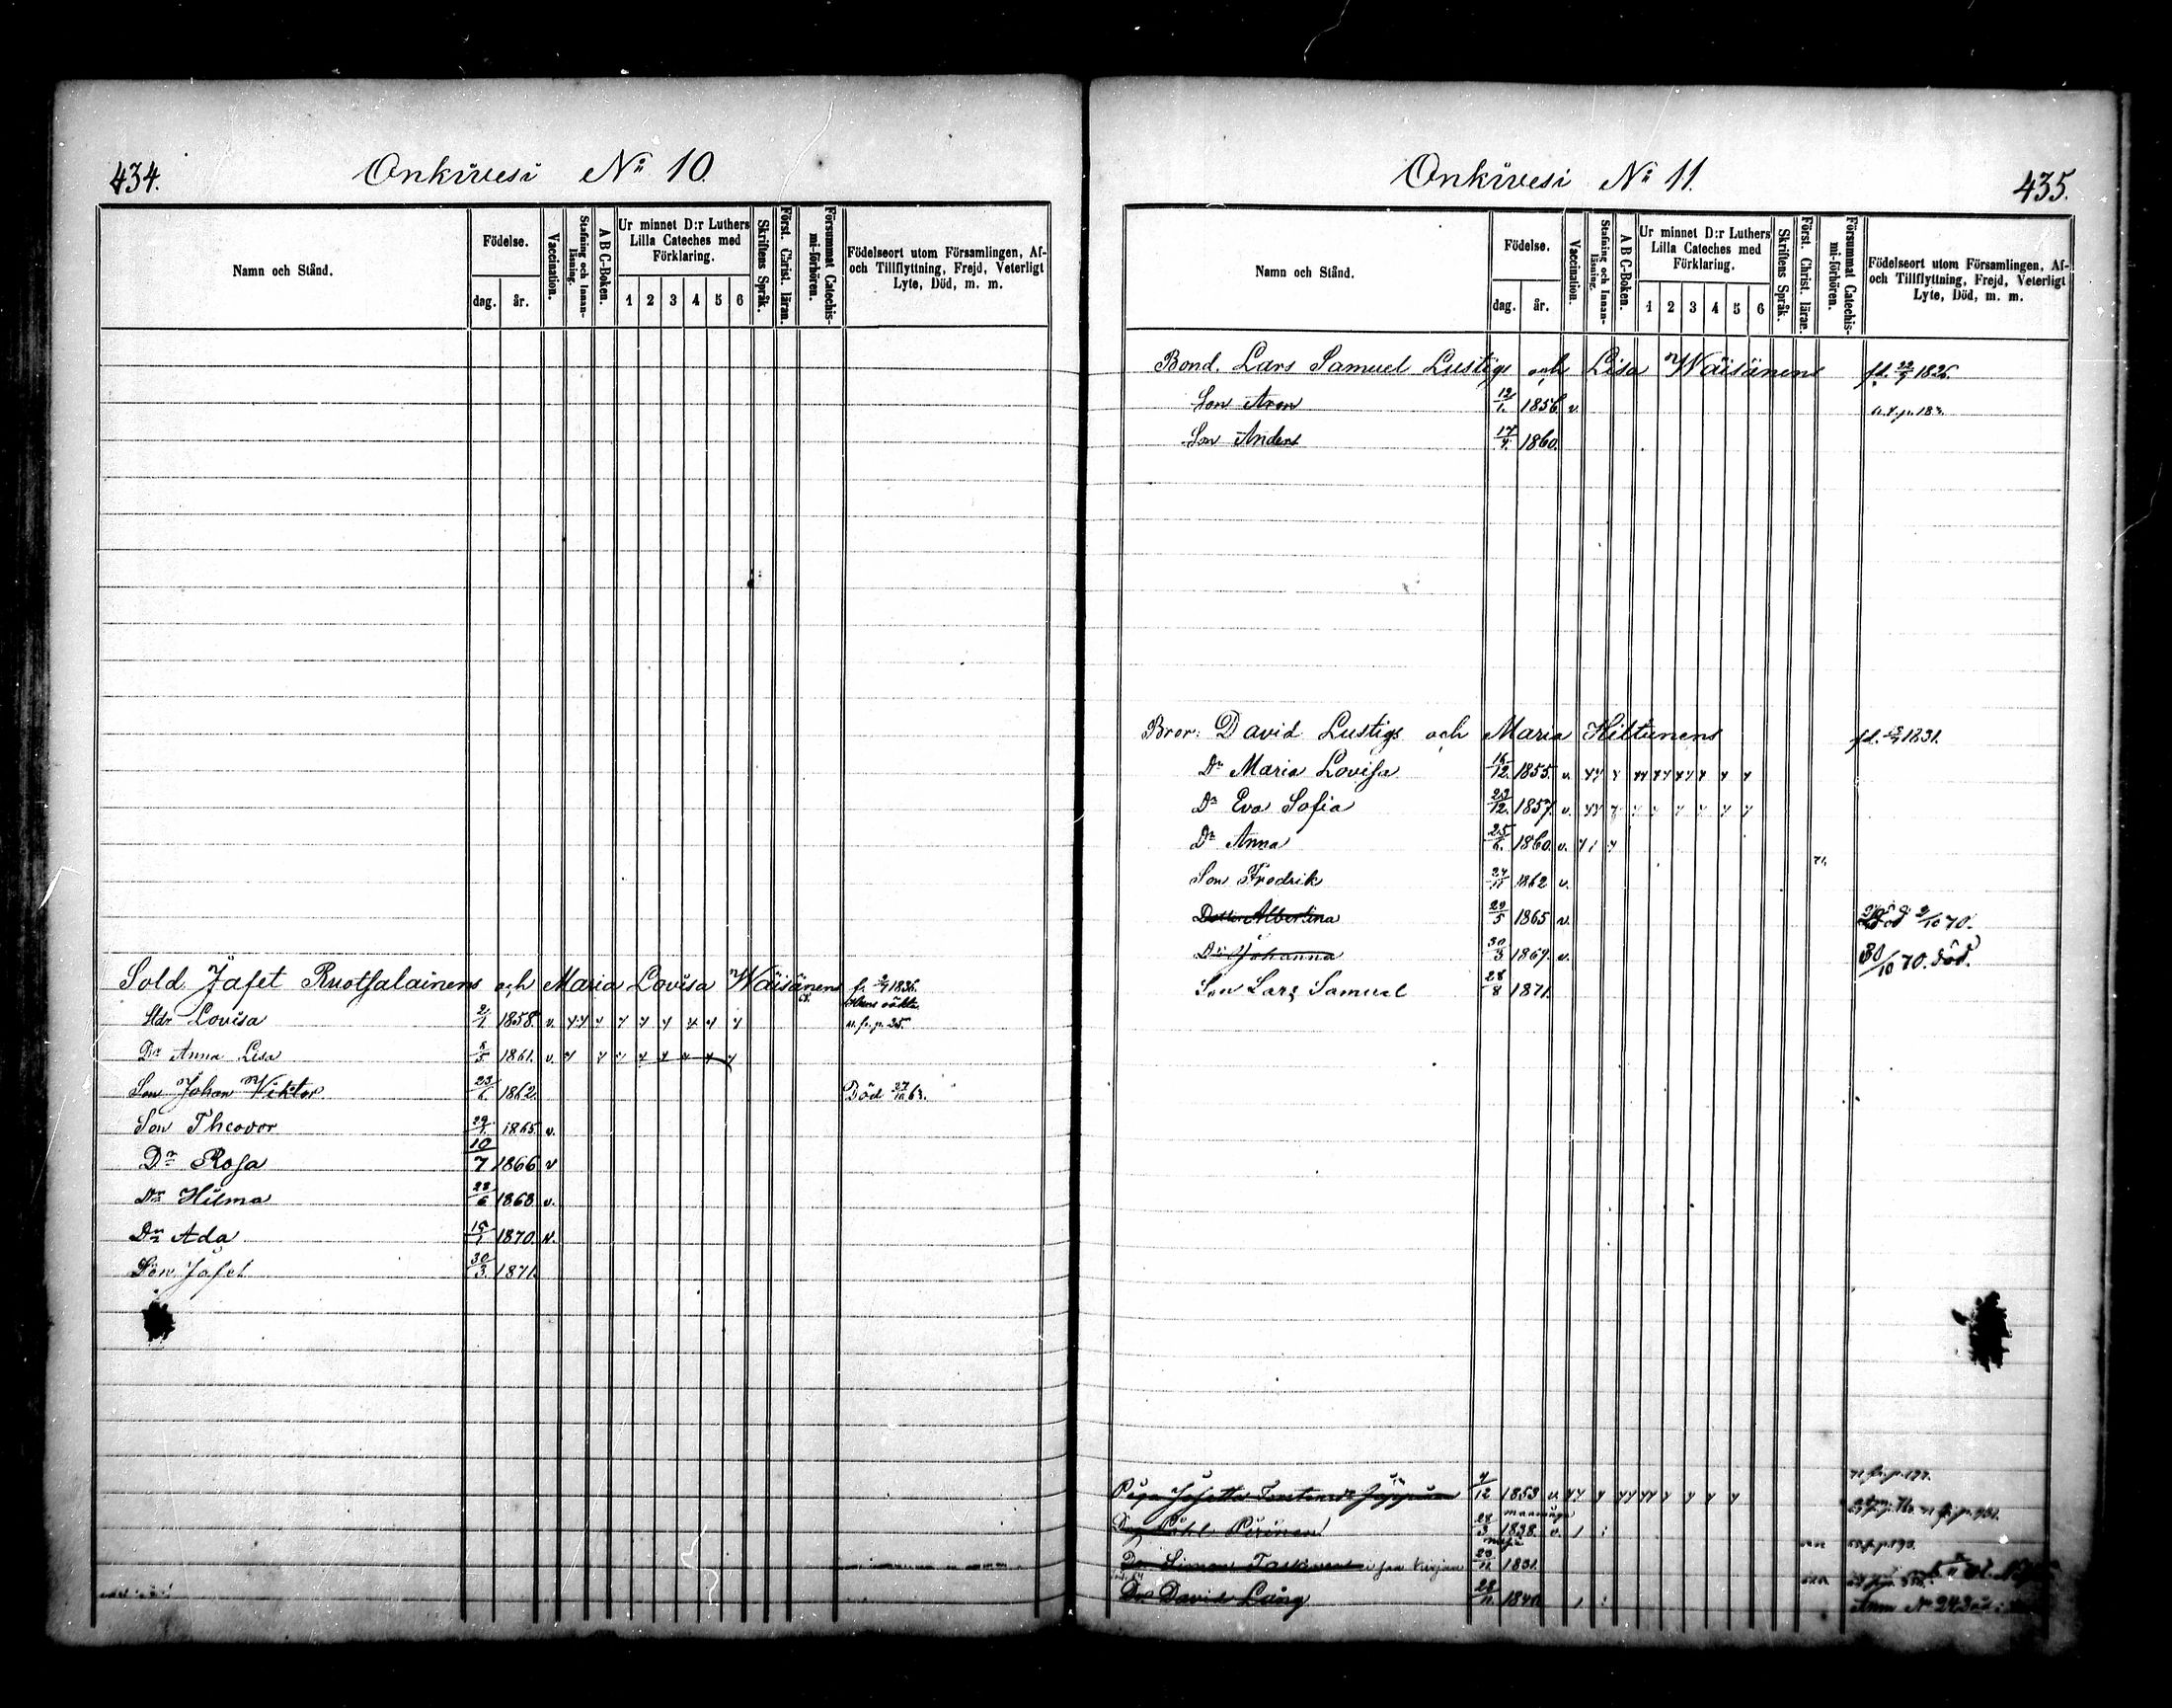 434.
Onkivesi No 10.
Namn och Stånd.
Födelse.
dag. år.
Vaccination.
Stafning och Innan-läsning.
A B C-Boken.
Ur minnet D:r Luthers Lilla Cateches med Förklaring.
1 2 3 4 5 6
Skriftens Språk.
Först. Christ. läran.
Försummat Catechis-mi-förhören.
Födelseort utom Församlingen, Af- och Tillflyttning, Frejd, Veterligt Lyte, Död, m. m.
Sold. Jafet Ruotsalainens och Maria Lovisa Wäisänens 1836.
Lovisa 2/1 1858. v.
Dr Anna Lisa 1861. v.
Son Johan Wiktor 23/6 1862. Död 27/10 63.
Son Theodor 1865 v.
Dr Rosa 10/7 1866 v
Dr Hilma 28/6 1868. v.
Dr Ada 15/1 1870. v.
Son Jafet 30/3 1871.
Onkivesi No 11.
435.
Namn och Stånd.
Födelse.
dag. år.
Vaccination.
Stafning och Innan-läsning.
A B C-Boken.
Ur minnet D:r Luthers Lilla Cateches med Förklaring.
1 2 3 4 5 6
Skriftens Språk.
Först. Christ. läran.
Försummat Catechis-mi-förhören.
Födelseort utom Församlingen, Af- och Tillflyttning, Frejd, Veterligt Lyte, Död, m. m.
Bond. Lars Samuel Lustigs och Lisa Wäisänens fd. 1826.
Son Aron 12/1. 1856 v.
Son Anders 17/4. 1860.
Bror: David Lustigs och Maria Hiltunens fd. 1831.
Dr Maria Lovisa 16/12. 1855. v.
Dr Eva Sofia 23/12. 1857. v.
Dr Anna 25/6. 1860. v.
Son Fredrik 27/11 1862 v.
Dotter Albertina 29/5 1865 v. Död 9/10 70.
Dr Johanna 30/3 1869. v. 30/10 70. död.
Son Lars Samuel 28/8 1871.
Piga 4/12 1853 v.
Pirinen 28/3 1838. v.
Simon 1831.
David Lång 28/11 1840